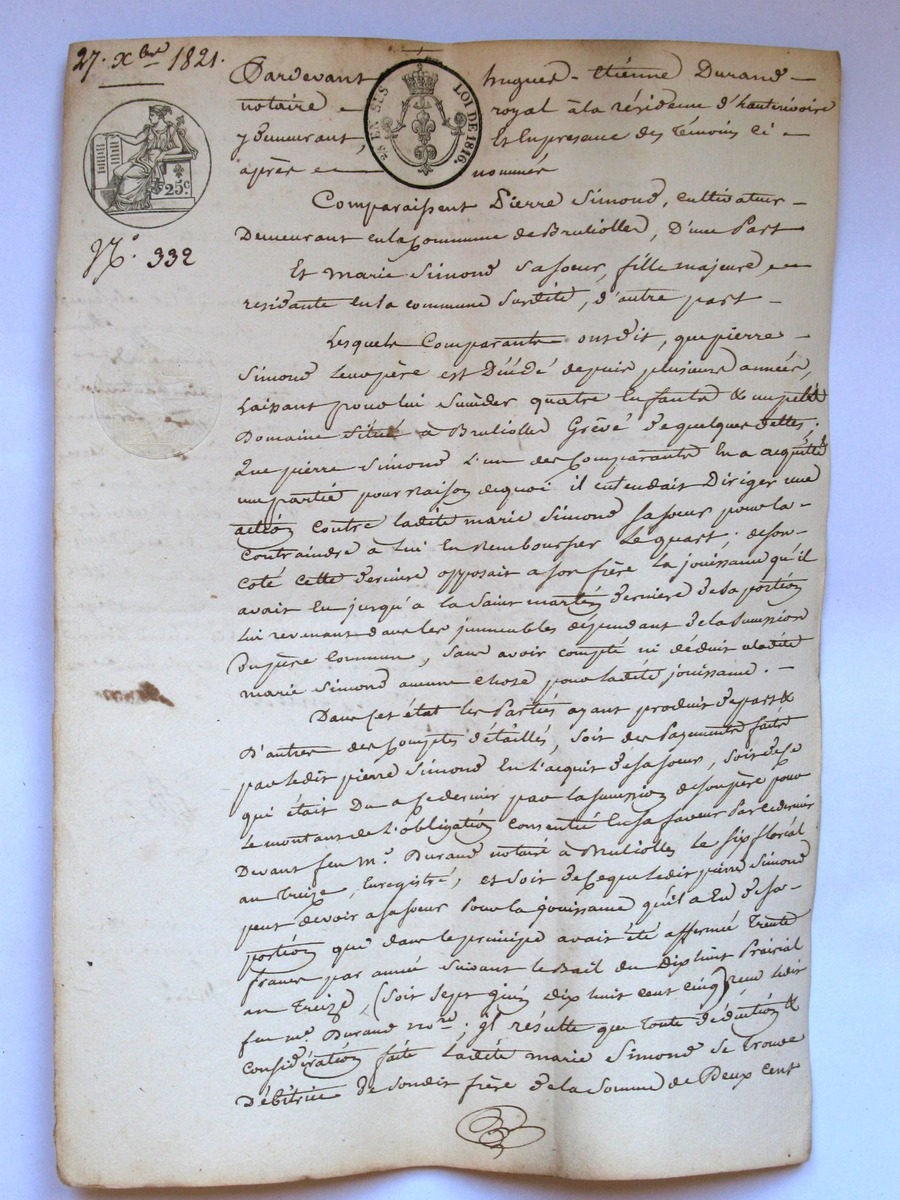 27. Xbre 1821.
25 EN SUS
LOI DE 1816.
25c
No. 332
Pardevant hugues-Etiénne Durand
notaire royal à la résidence d'hauterivoire
y demeurant, Et En presence des témoins ci
après nommés
Comparaissent Pierre Simond, cultivateur
Demeurant en la Commune de Brulioller, D'une Part
Et marie Simond Sa Soeur, fille majeure,
residante en la commune Susdite, d'autre part
Lesquels Comparants ont dit, que pierre
Simond leur père est Décédé depuis plusieurs années,
Laissant pour lui Succéder quatre Enfants & un petit
Domaine Situé à Brulioller Grévé de quelques dettes;
Que pierre Simond L'un des Comparants En a acquitté
une partie pour raison de quoi il entendait Diriger une
action contre ladite marie Simond sa soeur pour la
contraindre à lui En Rembourser Le quart. de son
coté cette derniere opposait a son frère la jouissance qu'il
avait Eu jusqu'à la Saint martin derniere de sa portion
lui revenant dans les immeubles dépendant de la Succession
du père Commun, sans avoir compté ni déduit a ladite
marie Simond aucune chose pour ladite jouissance.
Dans cet état les Parties ayant produit de part &
D'autres des Comptes détaillés, soit des Payements faits
par ledit pierre Simond En l'acquit de sa soeur, soit de ce
qui était Du a ce dernier par la succession de son père pour
Le montant de l'obligation consentie En sa faveur Par ce dernier
Devant feu Me. Durand notaire à Brulioller le six floréal
an Treize, Enregistré, et soit de ce que ledit pierre Simond
peut devoir a sa soeur Pour la jouissance qu'il a Eu de sa
portion qui dans le principe avait été affermée Trente
francs par année suivant le Bail du dix huit Prairial
an Treize, (Soit Sept juin dix huit cent cinq) reçu ledit
feu me. Durand nore; il résulte que toute déduction &
considération faite Ladite marie Simond Se trouve
Débitrice De Son dit frère de la Somme de Deux cent